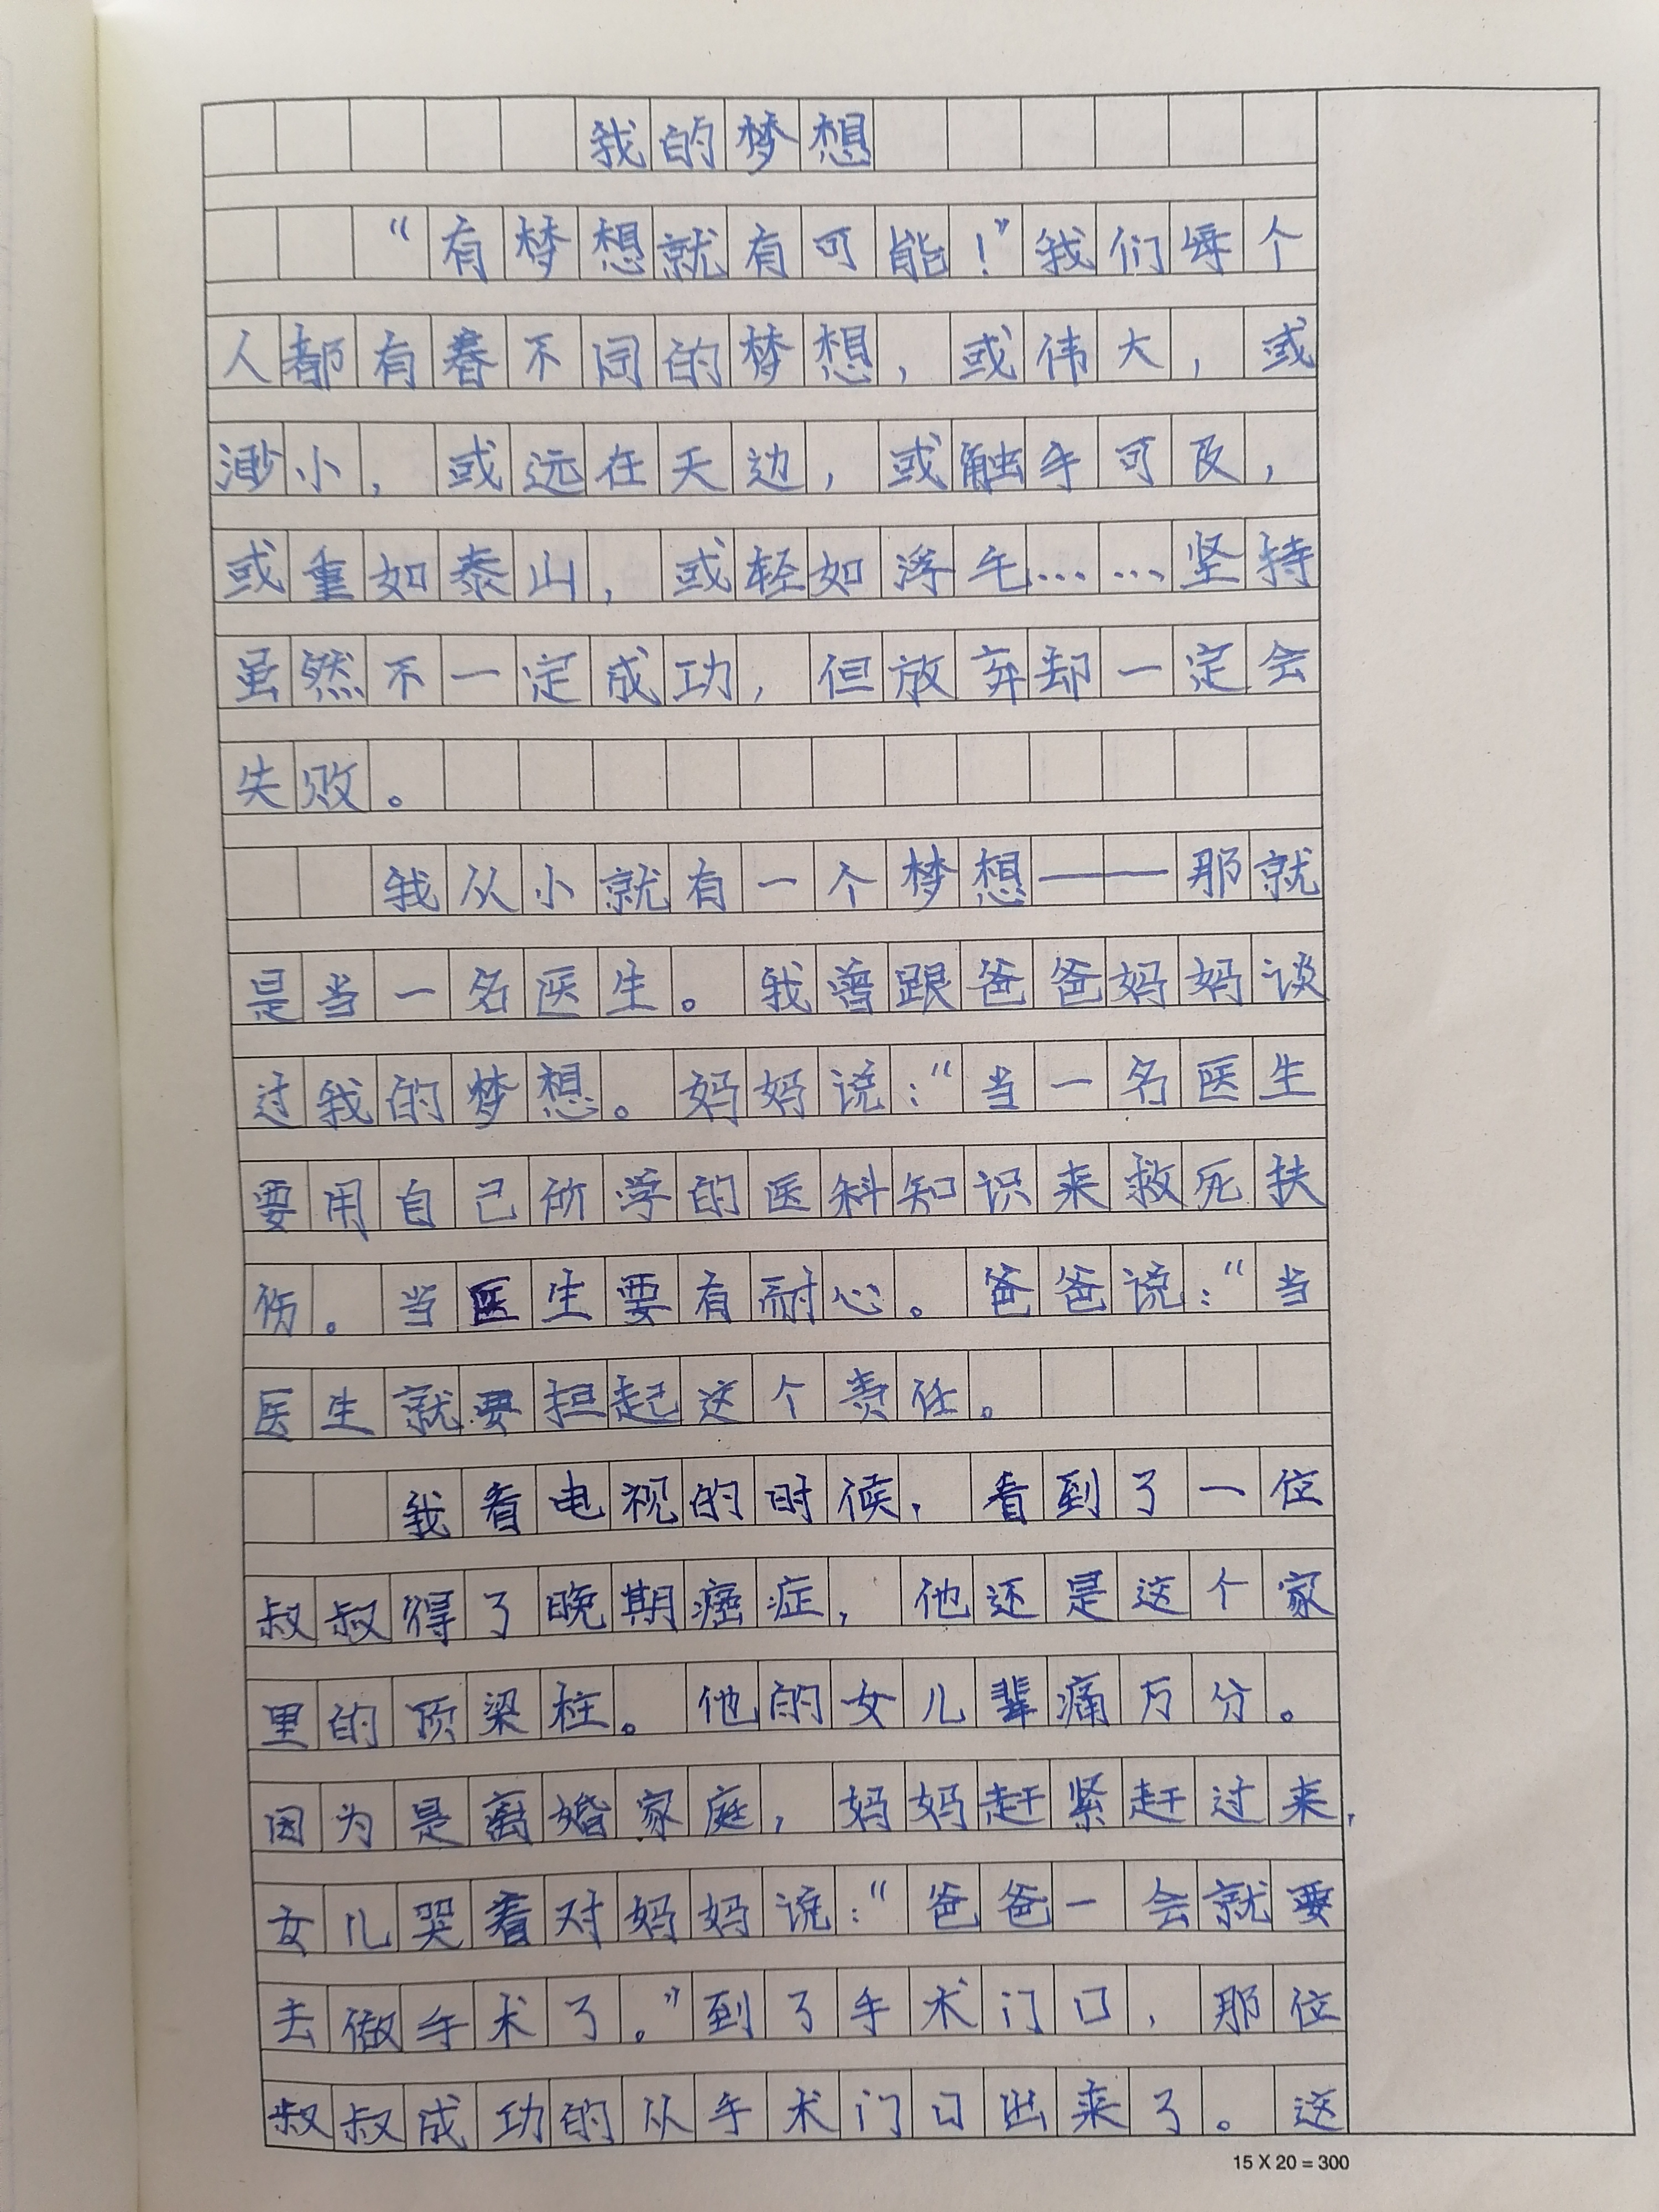 我的梦想
“有梦想就有可能!”我们每个
人都有着不同的梦想,或伟大,或
渺小,或远在天边,或触手可及,
或重如泰山,或轻如浮毛……坚持
虽然不一定成功,但放弃却一定会
失败。
我从小就有一个梦想——那就
是当一名医生。我曾跟爸爸妈妈谈
过我的梦想。妈妈说:“当一名医生
要用自己所学的医科知识来救死扶
伤。当医生要有耐心。爸爸说:“当
医生就要担起这个责任。
我看电视的时候,看到了一位
叔叔得了晚期癌症,他还是这个家
里的顶梁柱。他的女儿辈痛万分。
因为是离婚家庭,妈妈赶紧赶过来,
女儿哭着对妈妈说:“爸爸一会就要
去做手术了。”到了手术门口,那位
叔叔成功的从手术门口出来了。这
15 X 20 = 300